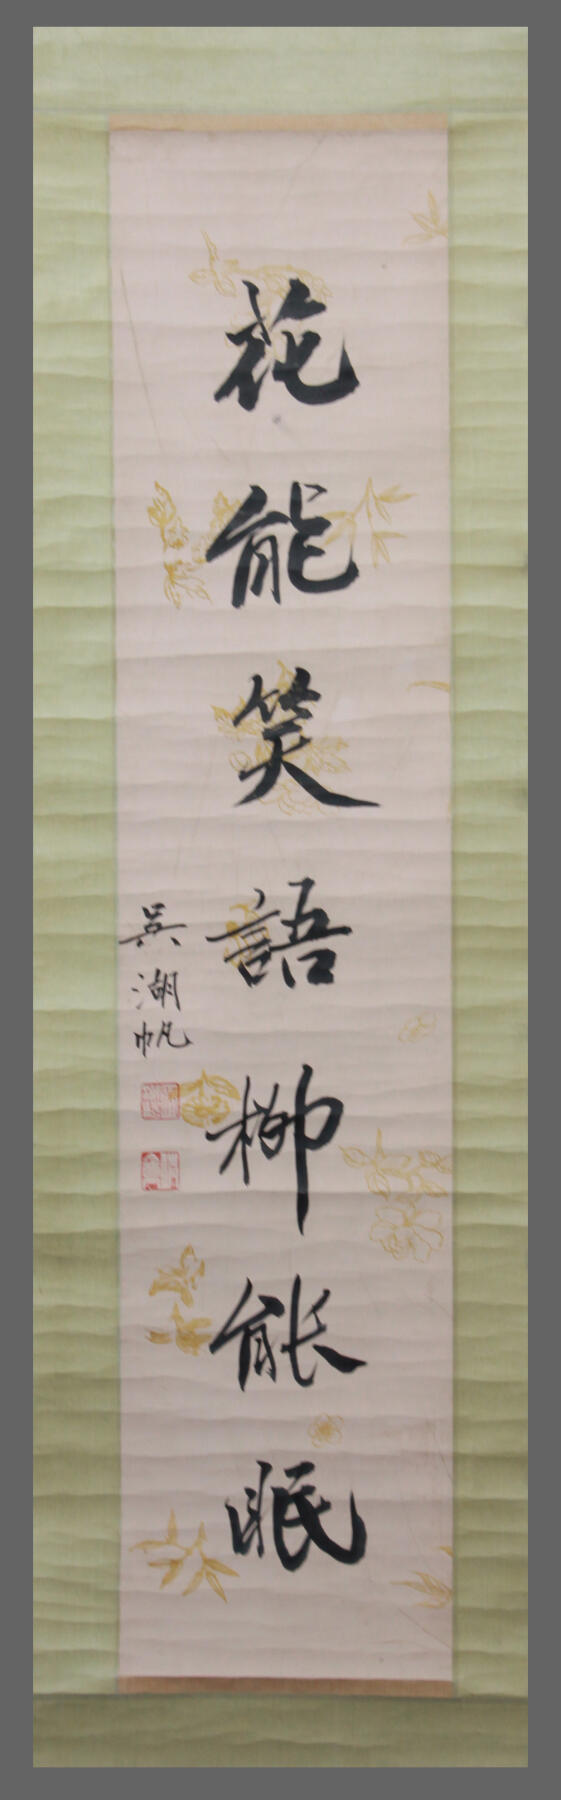 花能笑語柳能眠
吳湖帆